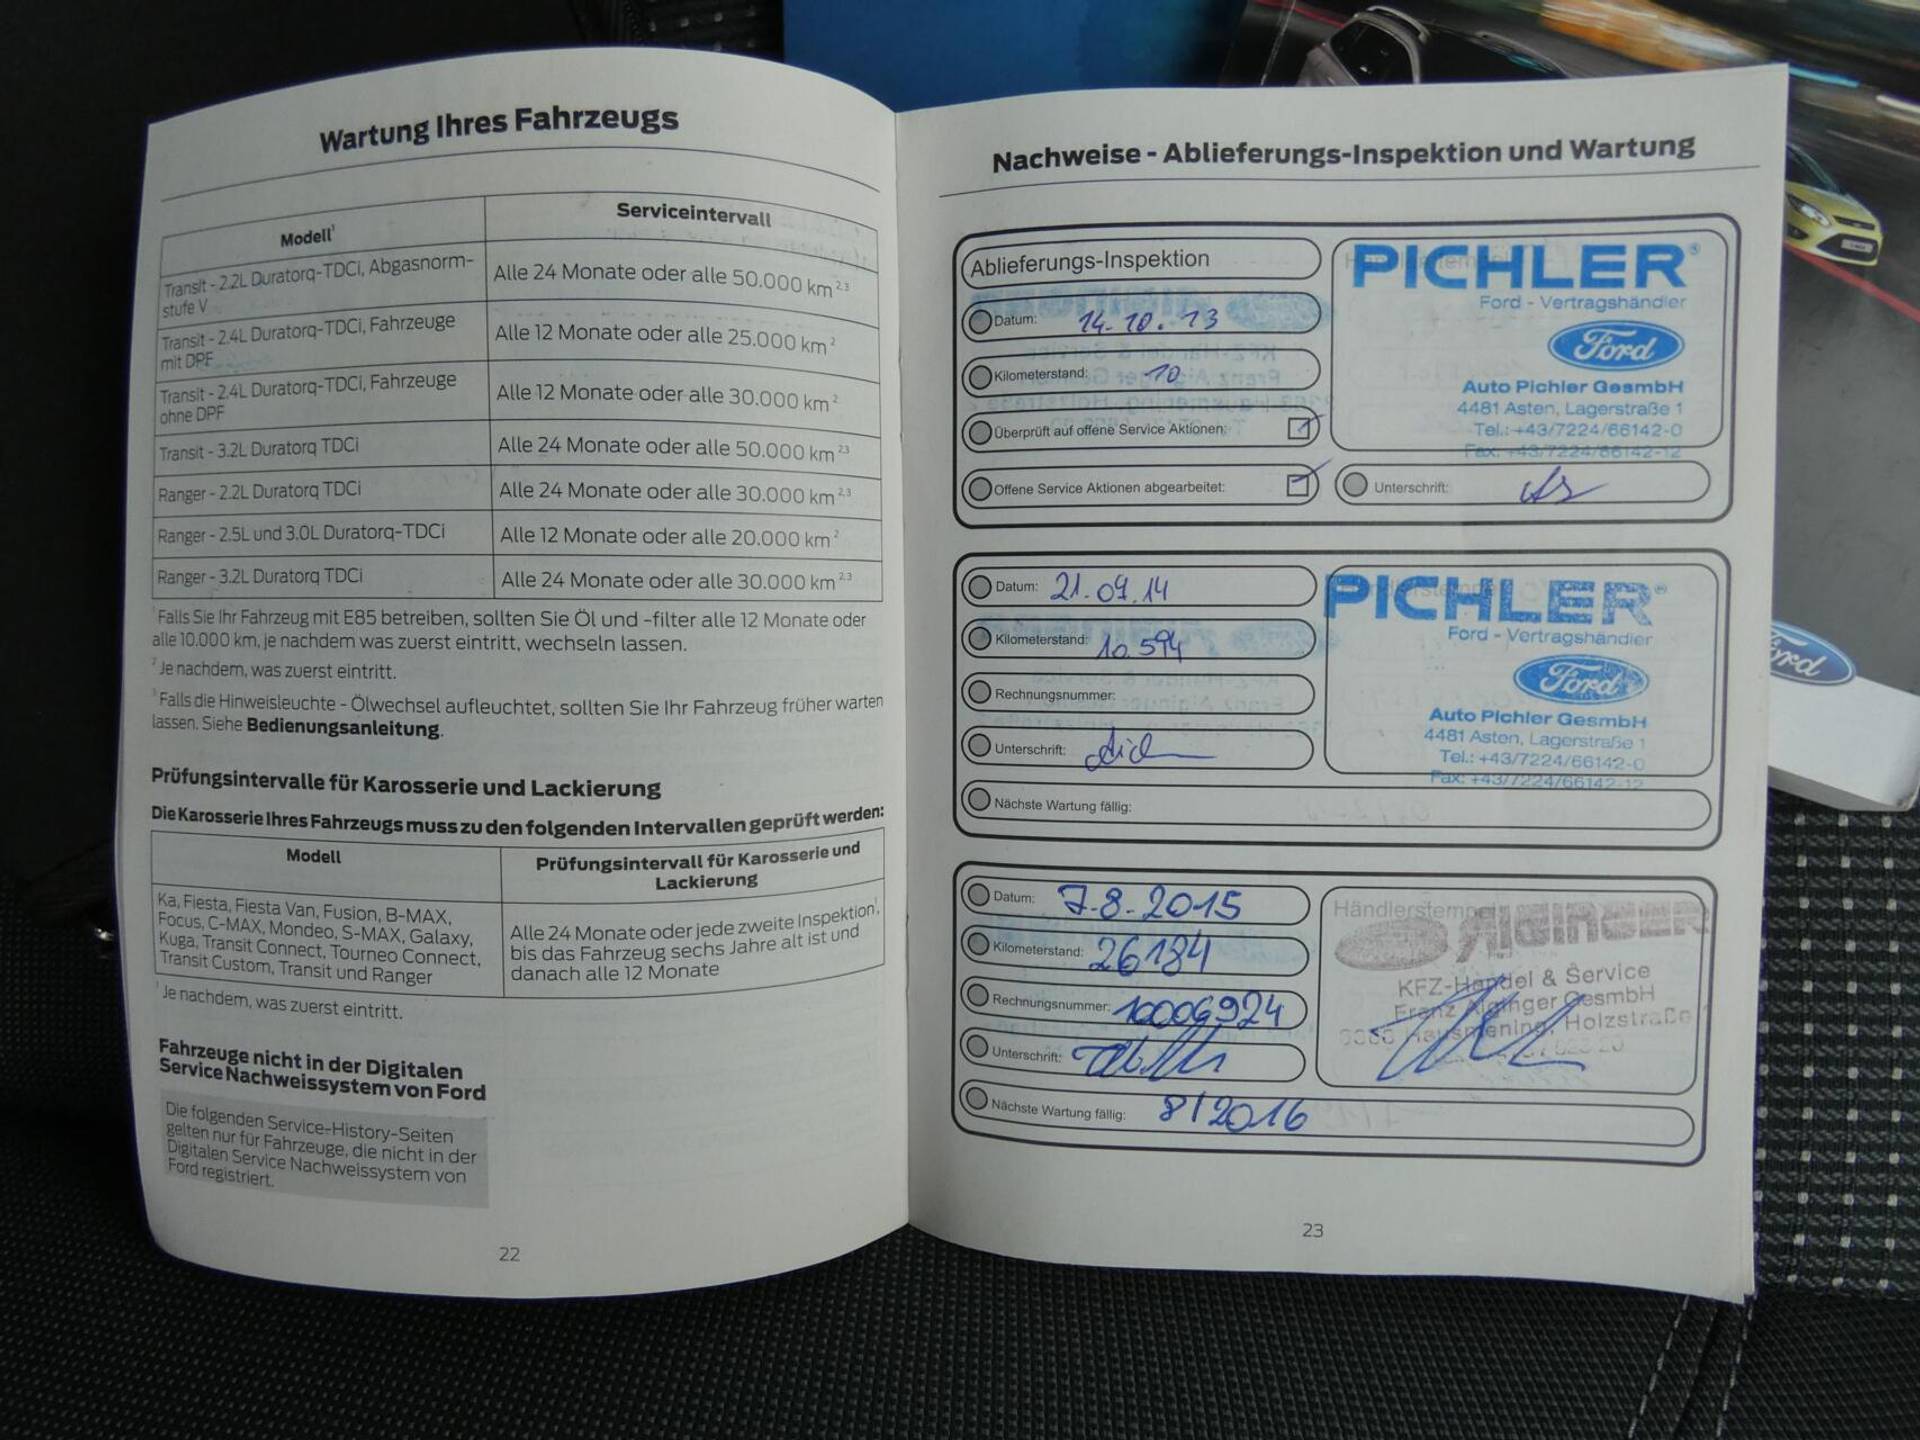 Wartung Ihres Fahrzeugs
Modell¹
Serviceintervall
Transit - 2.2L Duratorq-TDCi, Abgasnorm-
stufe V
Alle 24 Monate oder alle 50.000 km 2,3
Transit - 2.4L Duratorq-TDCi, Fahrzeuge
mit DPF
Alle 12 Monate oder alle 25.000 km 2
Transit - 2.4L Duratorq-TDCi, Fahrzeuge
ohne DPF
Alle 12 Monate oder alle 30.000 km 2
Transit - 3.2L Duratorq TDCi
Alle 24 Monate oder alle 50.000 km 2,3
Ranger - 2.2L Duratorq TDCi
Alle 24 Monate oder alle 30.000 km 2,3
Ranger - 2.5L und 3.0L Duratorq-TDCi
Alle 12 Monate oder alle 20.000 km 2
Ranger - 3.2L Duratorq TDCi
Alle 24 Monate oder alle 30.000 km 2,3
¹ Falls Sie Ihr Fahrzeug mit E85 betreiben, sollten Sie Öl und -filter alle 12 Monate oder
alle 10.000 km, je nachdem was zuerst eintritt, wechseln lassen.
² Je nachdem, was zuerst eintritt.
³ Falls die Hinweisleuchte - Ölwechsel aufleuchtet, sollten Sie Ihr Fahrzeug früher warten
lassen. Siehe Bedienungsanleitung.
Prüfungsintervalle für Karosserie und Lackierung
Die Karosserie Ihres Fahrzeugs muss zu den folgenden Intervallen geprüft werden:
Modell
Prüfungsintervall für Karosserie und
Lackierung
Ka, Fiesta, Fiesta Van, Fusion, B-MAX,
Focus, C-MAX, Mondeo, S-MAX, Galaxy,
Kuga, Transit Connect, Tourneo Connect,
Transit Custom, Transit und Ranger
Alle 24 Monate oder jede zweite Inspektion¹,
bis das Fahrzeug sechs Jahre alt ist und
danach alle 12 Monate
¹ Je nachdem, was zuerst eintritt.
Fahrzeuge nicht in der Digitalen
Service Nachweissystem von Ford
Die folgenden Service-History-Seiten
gelten nur für Fahrzeuge, die nicht in der
Digitalen Service Nachweissystem von
Ford registriert.
22
Nachweise - Ablieferungs-Inspektion und Wartung
Ablieferungs-Inspektion
Datum: 14.10.13
Kilometerstand: 10
Überprüft auf offene Service Aktionen:
Offene Service Aktionen abgearbeitet:
PICHLER®
Ford - Vertragshändler
Ford
Auto Pichler GesmbH
4481 Asten, Lagerstraße 1
Tel.: +43/7224/66142-0
Fax: +43/7224/66142-12
Unterschrift:
Datum: 21.09.14
Kilometerstand: 10.594
Rechnungsnummer:
Unterschrift:
Nächste Wartung fällig:
PICHLER®
Ford - Vertragshändler
Ford
Auto Pichler GesmbH
4481 Asten, Lagerstraße 1
Tel.: +43/7224/66142-0
Fax: +43/7224/66142-12
Datum: 7.8.2015
Kilometerstand: 26184
Rechnungsnummer: 10006924
Unterschrift:
Nächste Wartung fällig: 8/2016
Händlerstempel
AIGINGER
KFZ-Handel & Service
Franz Aiginger GesmbH
Hausmening, Holzstraße
23
Ford